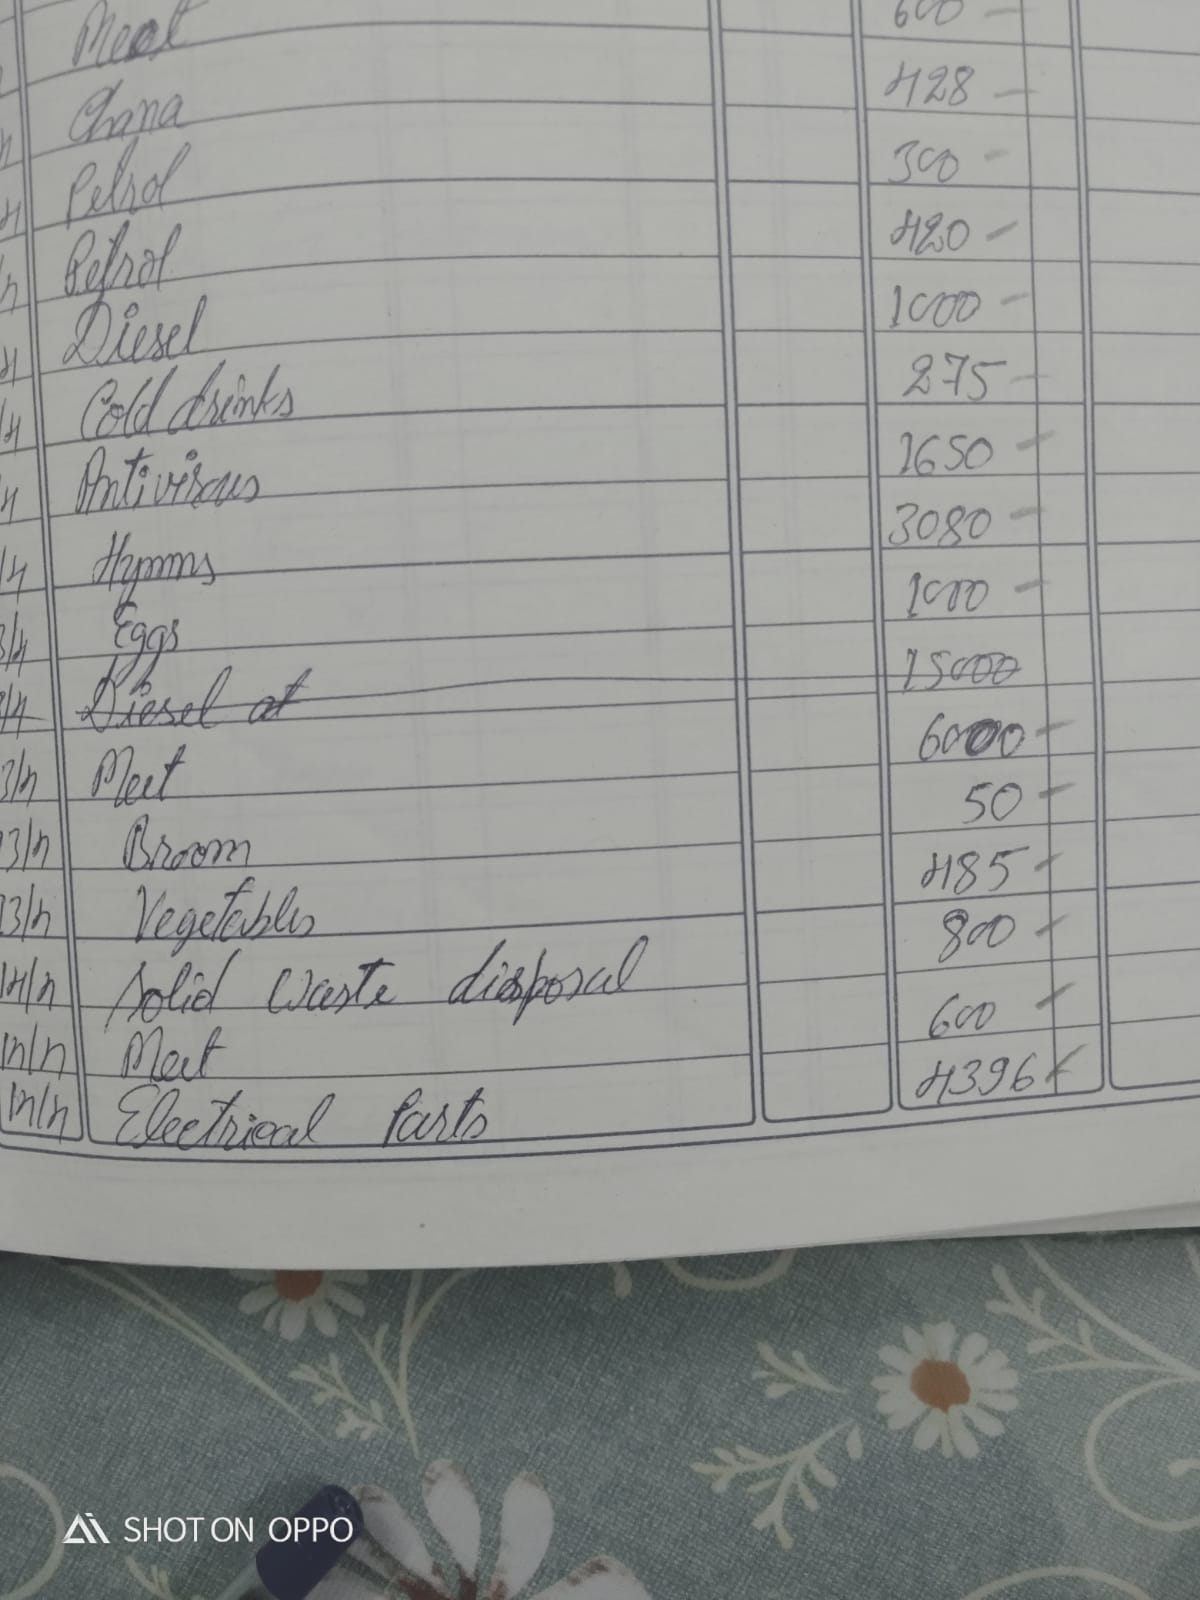 Meat 600 -
Chana 428 -
Petrol 300 -
Petrol 420 -
Diesel 1000 -
/4 Cold drinks 275 -
Antivirous 1650 -
/4 Hymms 3080 -
3/4 Eggs 1000 -
/4 Diesel at 15000
3/4 Meet 6000 -
13/4 Broom 50 -
13/4 Vegetables 485 -
14/4 Solid waste disposal 800 -
14/4 Meet 600 -
14/4 Electrical Parts 4396
SHOT ON OPPO